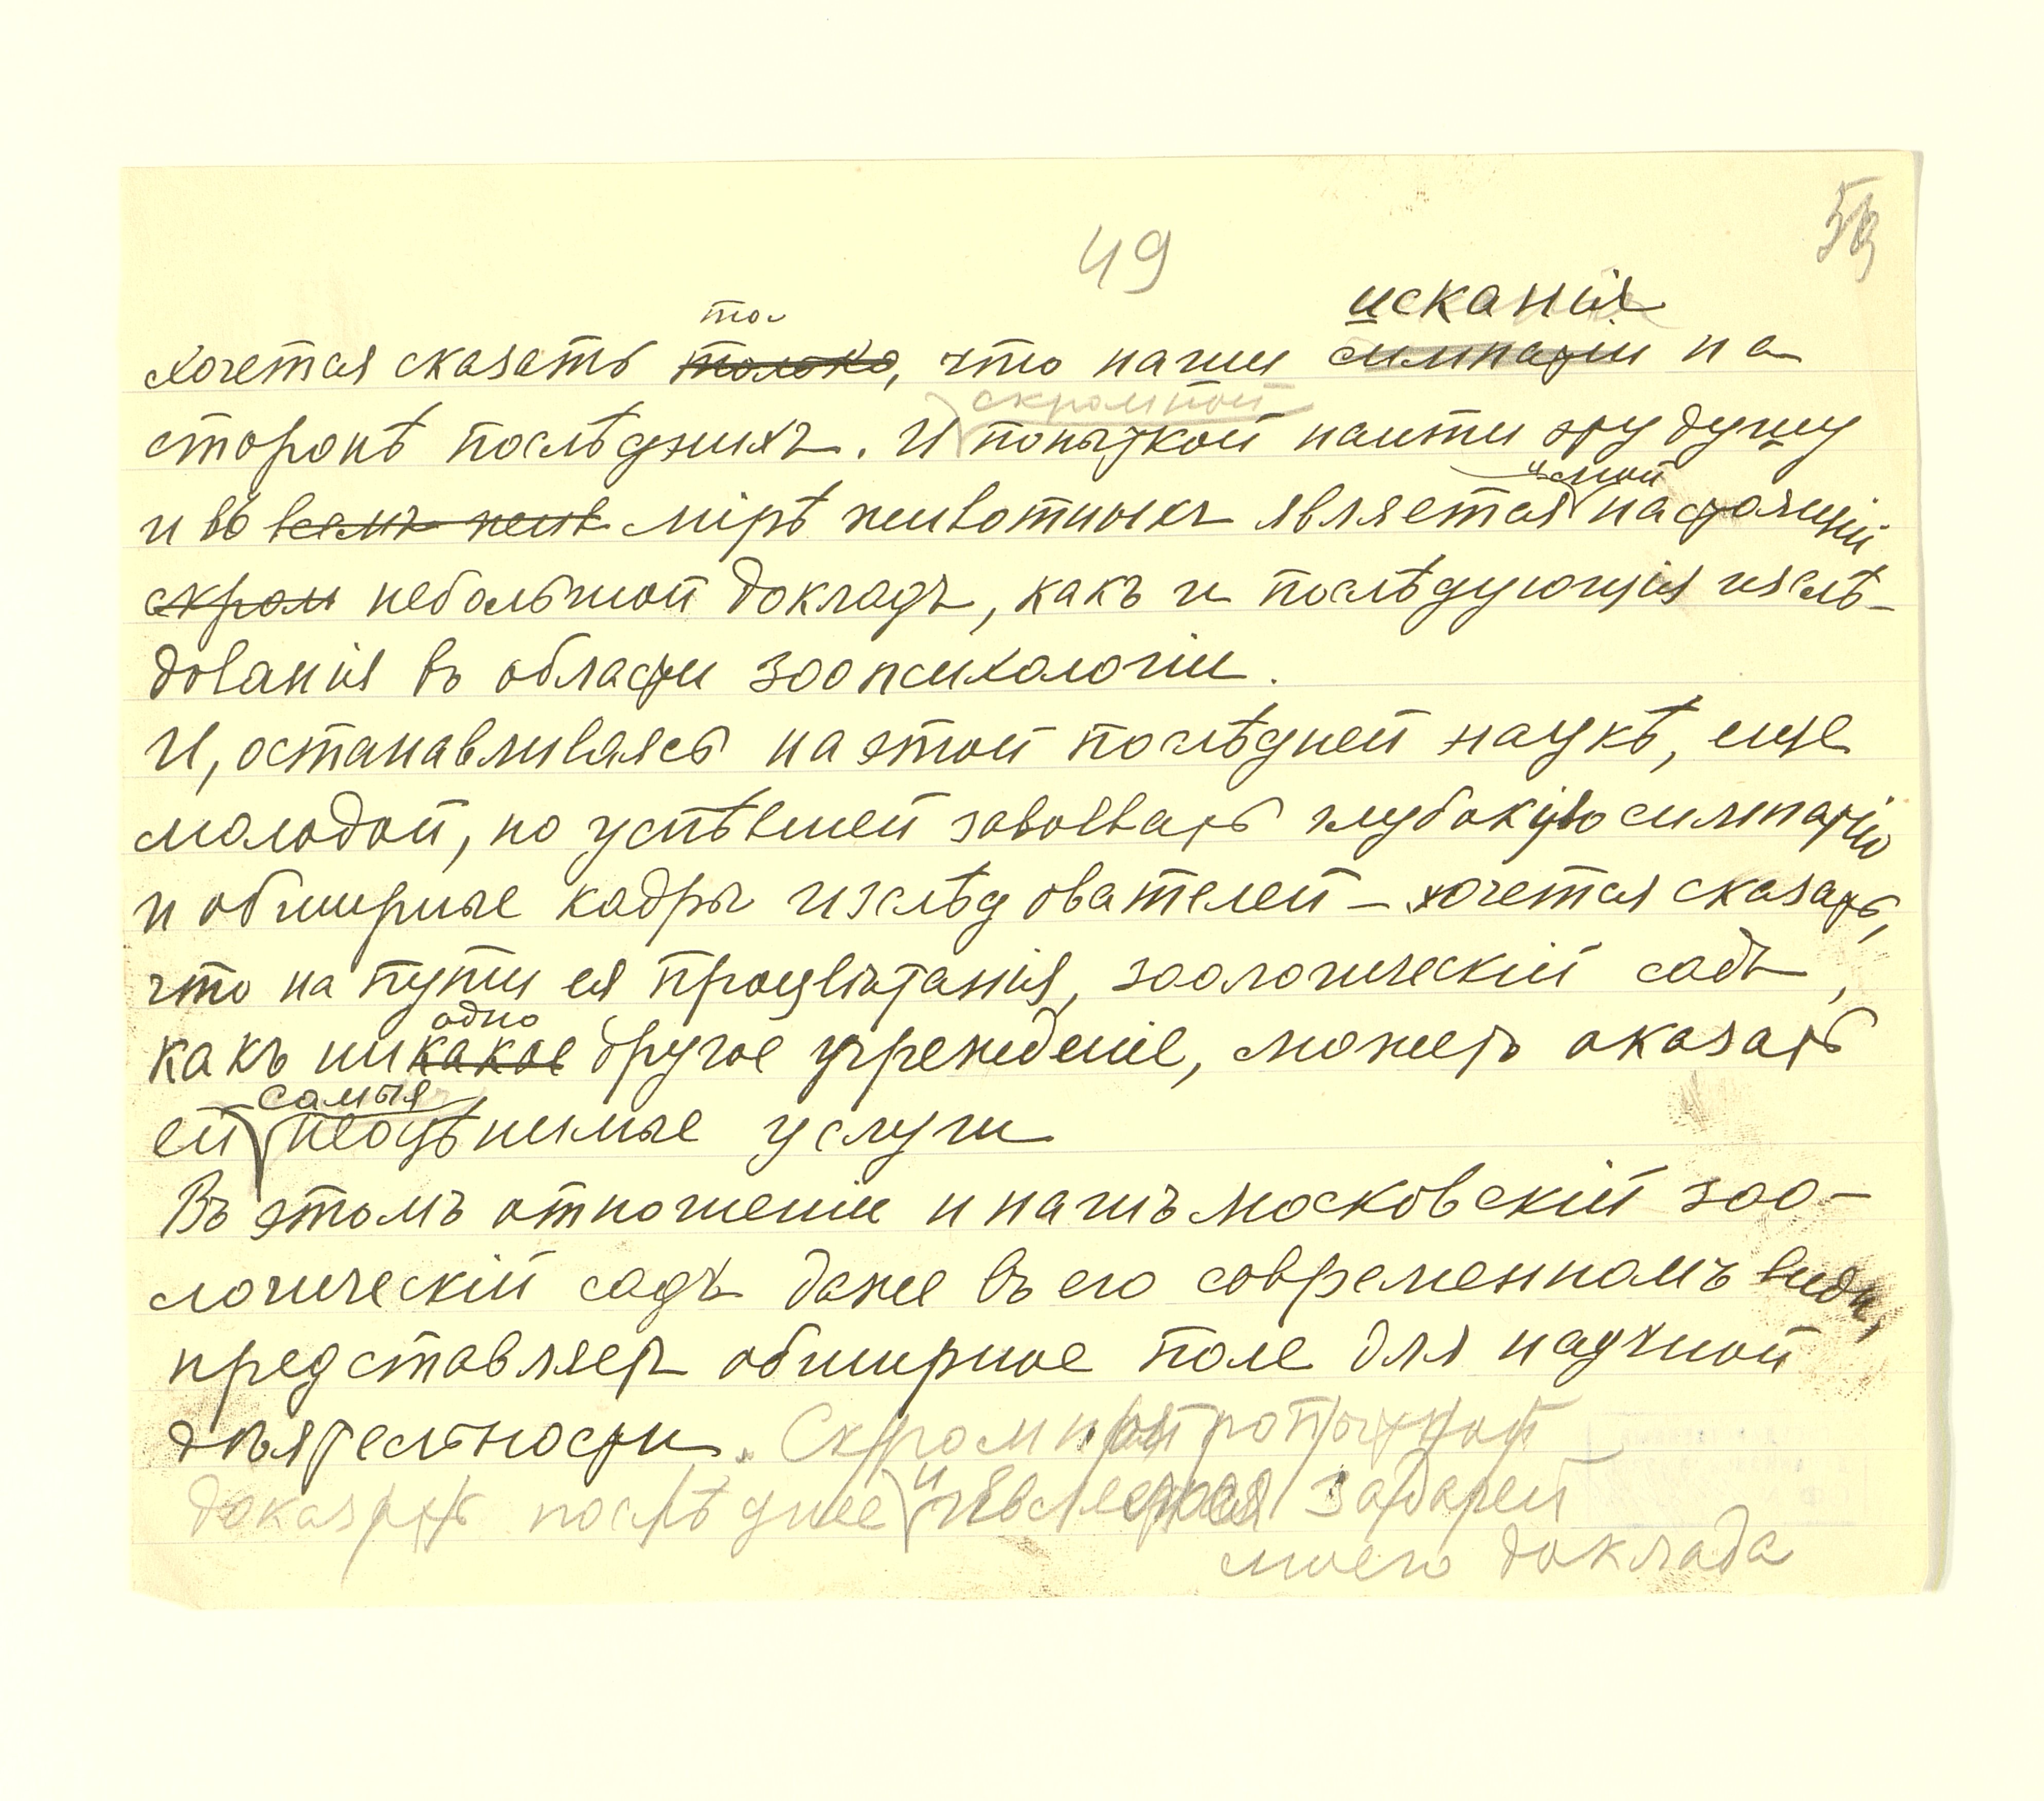 49
исканія
то
хочется сказать только, что наши симпатіи на
скромной
сторонѣ послѣднихъ. И попыткой найти эту душу
и мой
и въ всемъ жив мірѣ животныхъ является настоящій
скром небольшой докладъ, какъ и послѣдующія изслѣ-
дованія въ области зоопсихологіи.
И, останавливаясь на этой послѣдней наукѣ, еще
молодой, но успѣвшей завоевать глубокую симпатію
и обширные кадры изслѣдователей – хочется сказать,
что на пути ея процвѣтанія, зоологическій садъ,
одно
какъ никакое другое учрежденіе, можетъ оказать
самыя
ей неоцѣнимые услуги
Въ этомъ отношеніи и нашъ московскій зоо-
логическій садъ даже въ его современномъ видѣ,
представляетъ обширное поле для научной
дѣятельности. Скромной попыткой
и
доказать послѣднее является задачей
моего доклада